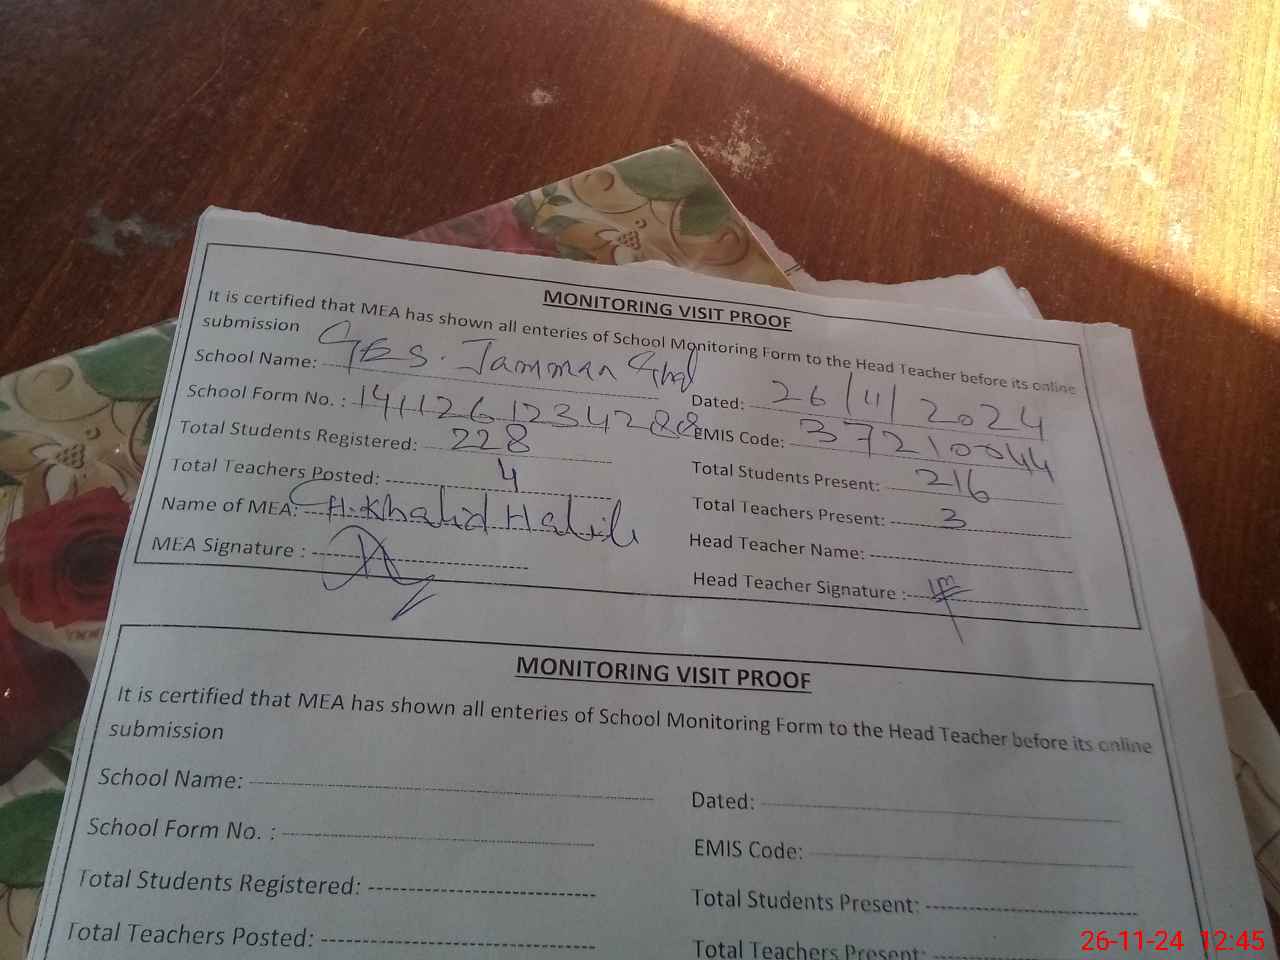 MONITORING VISIT PROOF
It is certified that MEA has shown all enteries of School Monitoring Form to the Head Teacher before its online
submission
School Name: GES. Jamman
Dated: 26/11/2024
School Form No. : 1411261234288
EMIS Code: 37210044
Total Students Registered: 228
Total Students Present: 216
Total Teachers Posted: 4
Total Teachers Present: 3
Name of MEA: CH. Khalid Habib
Head Teacher Name:
MEA Signature :
Head Teacher Signature :
MONITORING VISIT PROOF
It is certified that MEA has shown all enteries of School Monitoring Form to the Head Teacher before its online
submission
School Name:
Dated:
School Form No. :
EMIS Code:
Total Students Registered:
Total Students Present:
Total Teachers Posted:
Total Teachers Present:
26-11-24 12:45